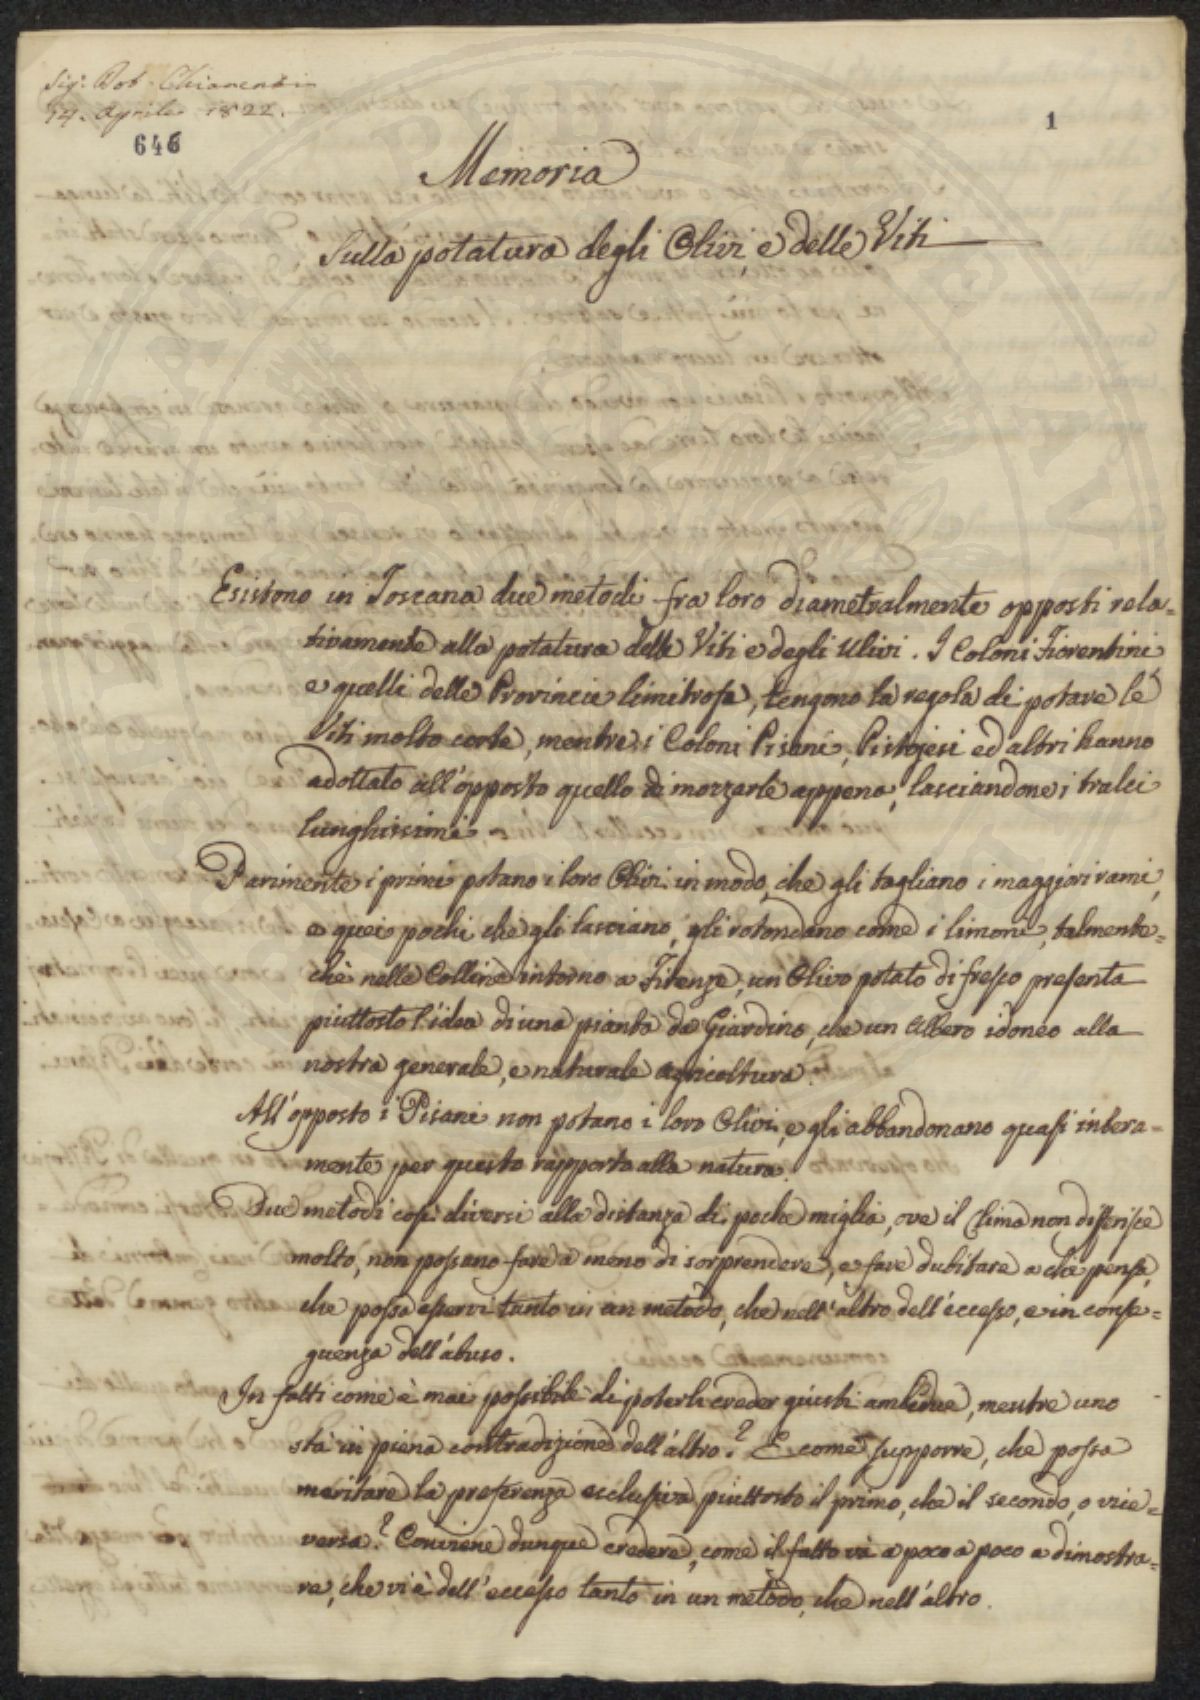 Sig: Dot. Chiarenti
14. Aprile 1822.
646
1
Memoria
Sulla potatura degli Olivi, e delle Viti
Esistono in Toscana due metodi fra loro diametralmente opposti rela=
tivamente alla potatura delle Viti e degli Ulivi. I Coloni Fiorentini
e quelli delle Provincie limitrofe, tengono la regola di potare le
Viti molto corte, mentre i Coloni Pisani, Pistojesi ed altri hanno
adottato all'opposto quello di mozzarle appena, lasciandone i tralci
lunghissimi.
Parimente i primi potano i loro Olivi in modo, che gli tagliano i maggiori rami,
e quei pochi che gli lasciano, gli rotondano come i limoni, talmente=
chè nelle Colline intorno a Firenze, un Olivo potato di fresco presenta
piuttosto l'idea di una pianta da Giardino, che un Albero idoneo alla
nostra generale, e naturale agricoltura.
All'opposto i Pisani non potano i loro Olivi, e gli abbandonano quasi intera=
mente per questo rapporto alla natura.
Due metodi così diversi alla distanza di poche miglia, ove il Clima non differisce
molto, non possano fare a meno di sorprendere, e fare dubitare a chi pensa,
che possa esservi tanto in un metodo, che nell'altro dell'eccesso, e in conse=
guenza dell'abuso.
In fatti come è mai possibile di poterli creder giusti ambedue, mentre uno
stà in piena contradizione dell'altro? E come supporre, che possa
meritare la preferenza esclusiva piuttosto il primo, che il secondo, o vice=
versa? Conviene dunque credere, come il fatto và a poco a poco a dimostra=
re, che vi è dell'eccesso tanto in un metodo, che nell'altro.